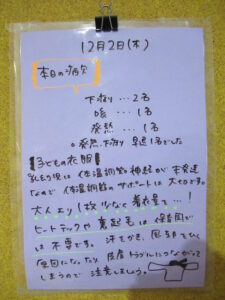 12月2日(木)
本日の病欠
下痢り…2名
咳…1名
発熱…1名
○発熱、下痢り 早退1名でした
子どもの衣服
乳幼児は体温調節神経が未発達
なので体温調節のサポートは大切です。
大人より1枚少なく着衣量で…!
ヒートテックや裏起毛は保育園で
は不要です。汗をかき、風邪をひく
原因になったり、皮膚トラブルにつながって
しまうので注意しましょう。